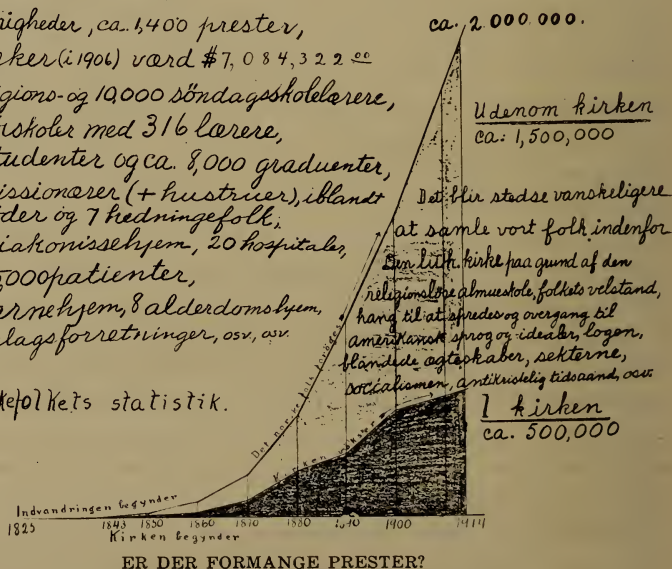 igheder, ca. 1,400 prester,
ker (i 1906) værd $7,084,322 00
gions- og 10,000 söndagsskolelærere,
skoler med 316 lærere,
tudenter og ca. 8,000 graduenter,
issionærer (+ hustruer), iblandt
der og 7 hedningefolk,
iakonissehjem, 20 hospitaler,
,000 patienter,
rnehjem, 8 alderdomshjem,
lagsforretninger, osv., osv.
kefolkets statistik.
ca. 2.000.000.
Udenom kirken
ca: 1,500,000
Det blir stedse vanskeligere
at samle vort folk indenfor
Den luth. kirke paa grund af den
religionslöse almueskole, folkets velstand,
hang til at spredes og overgang til
amerikansk sprog og idealer, logen,
blandede ægteskaber, sekterne,
socialismen, antikristelig tidsaand, osv.
I kirken
ca. 500,000
Det norske folk foröges
Kirken vokster
Indvandringen begynder
1825 1843 1850 1860 1870 1880 1890 1900 1914
Kirken begynder
ER DER FORMANGE PRESTER?